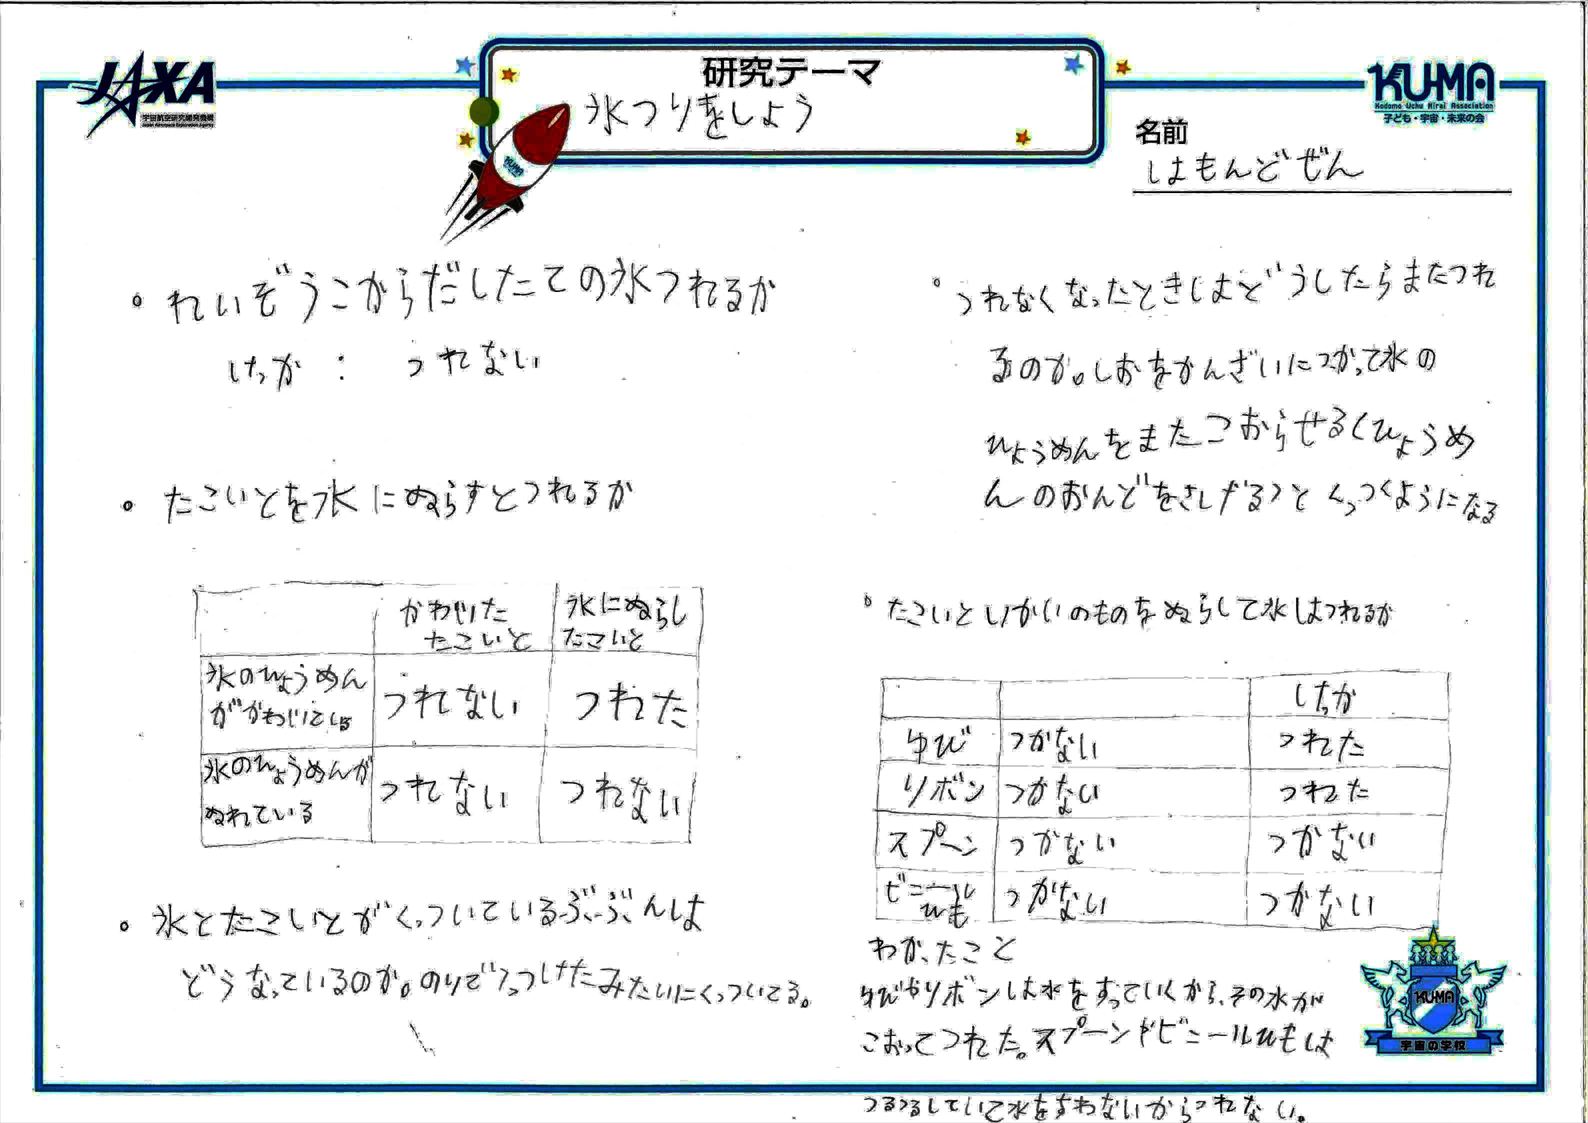 JAXA
宇宙航空研究開発機構
Japan Aerospace Exploration Agency
研究テーマ
氷つりをしよう
KUMA
KUMA
Kodomo Uchu Mirai Association
子ども・宇宙・未来の会
名前
はもんどぜん
。れいぞうこからだしたての氷つれるか
けっか： つれない
。たこいとを水にぬらすとつれるか
かわいた
たこいと
水にぬらし
たこいと
氷のひょうめん
がかわいている
つれない
つれた
氷のひょうめんが
ぬれている
つれない
つれない
。氷とたこいとがくっついているぶぶんは
どうなっているのか。のりでくっつけたみたいにくっついてる。
。つれなくなったときはどうしたらまたつれ
るのか。しおをかんざいにつかって氷の
ひょうめんをまたこおらせる(ひょうめ
んのおんどをさげる)とくっつくようになる
。たこいといがいのものをぬらして氷はつれるか
けっか
ゆび
つかない
つれた
リボン
つかない
つれた
スプーン
つかない
つかない
ビニール
ひも
つかない
つかない
わかったこと
ゆびやリボンは水をすっていくから、その水が
こおってつれた。スプーンやビニールひもは
つるつるしていて水をすわないからつれない。
KUMA
宇宙の学校